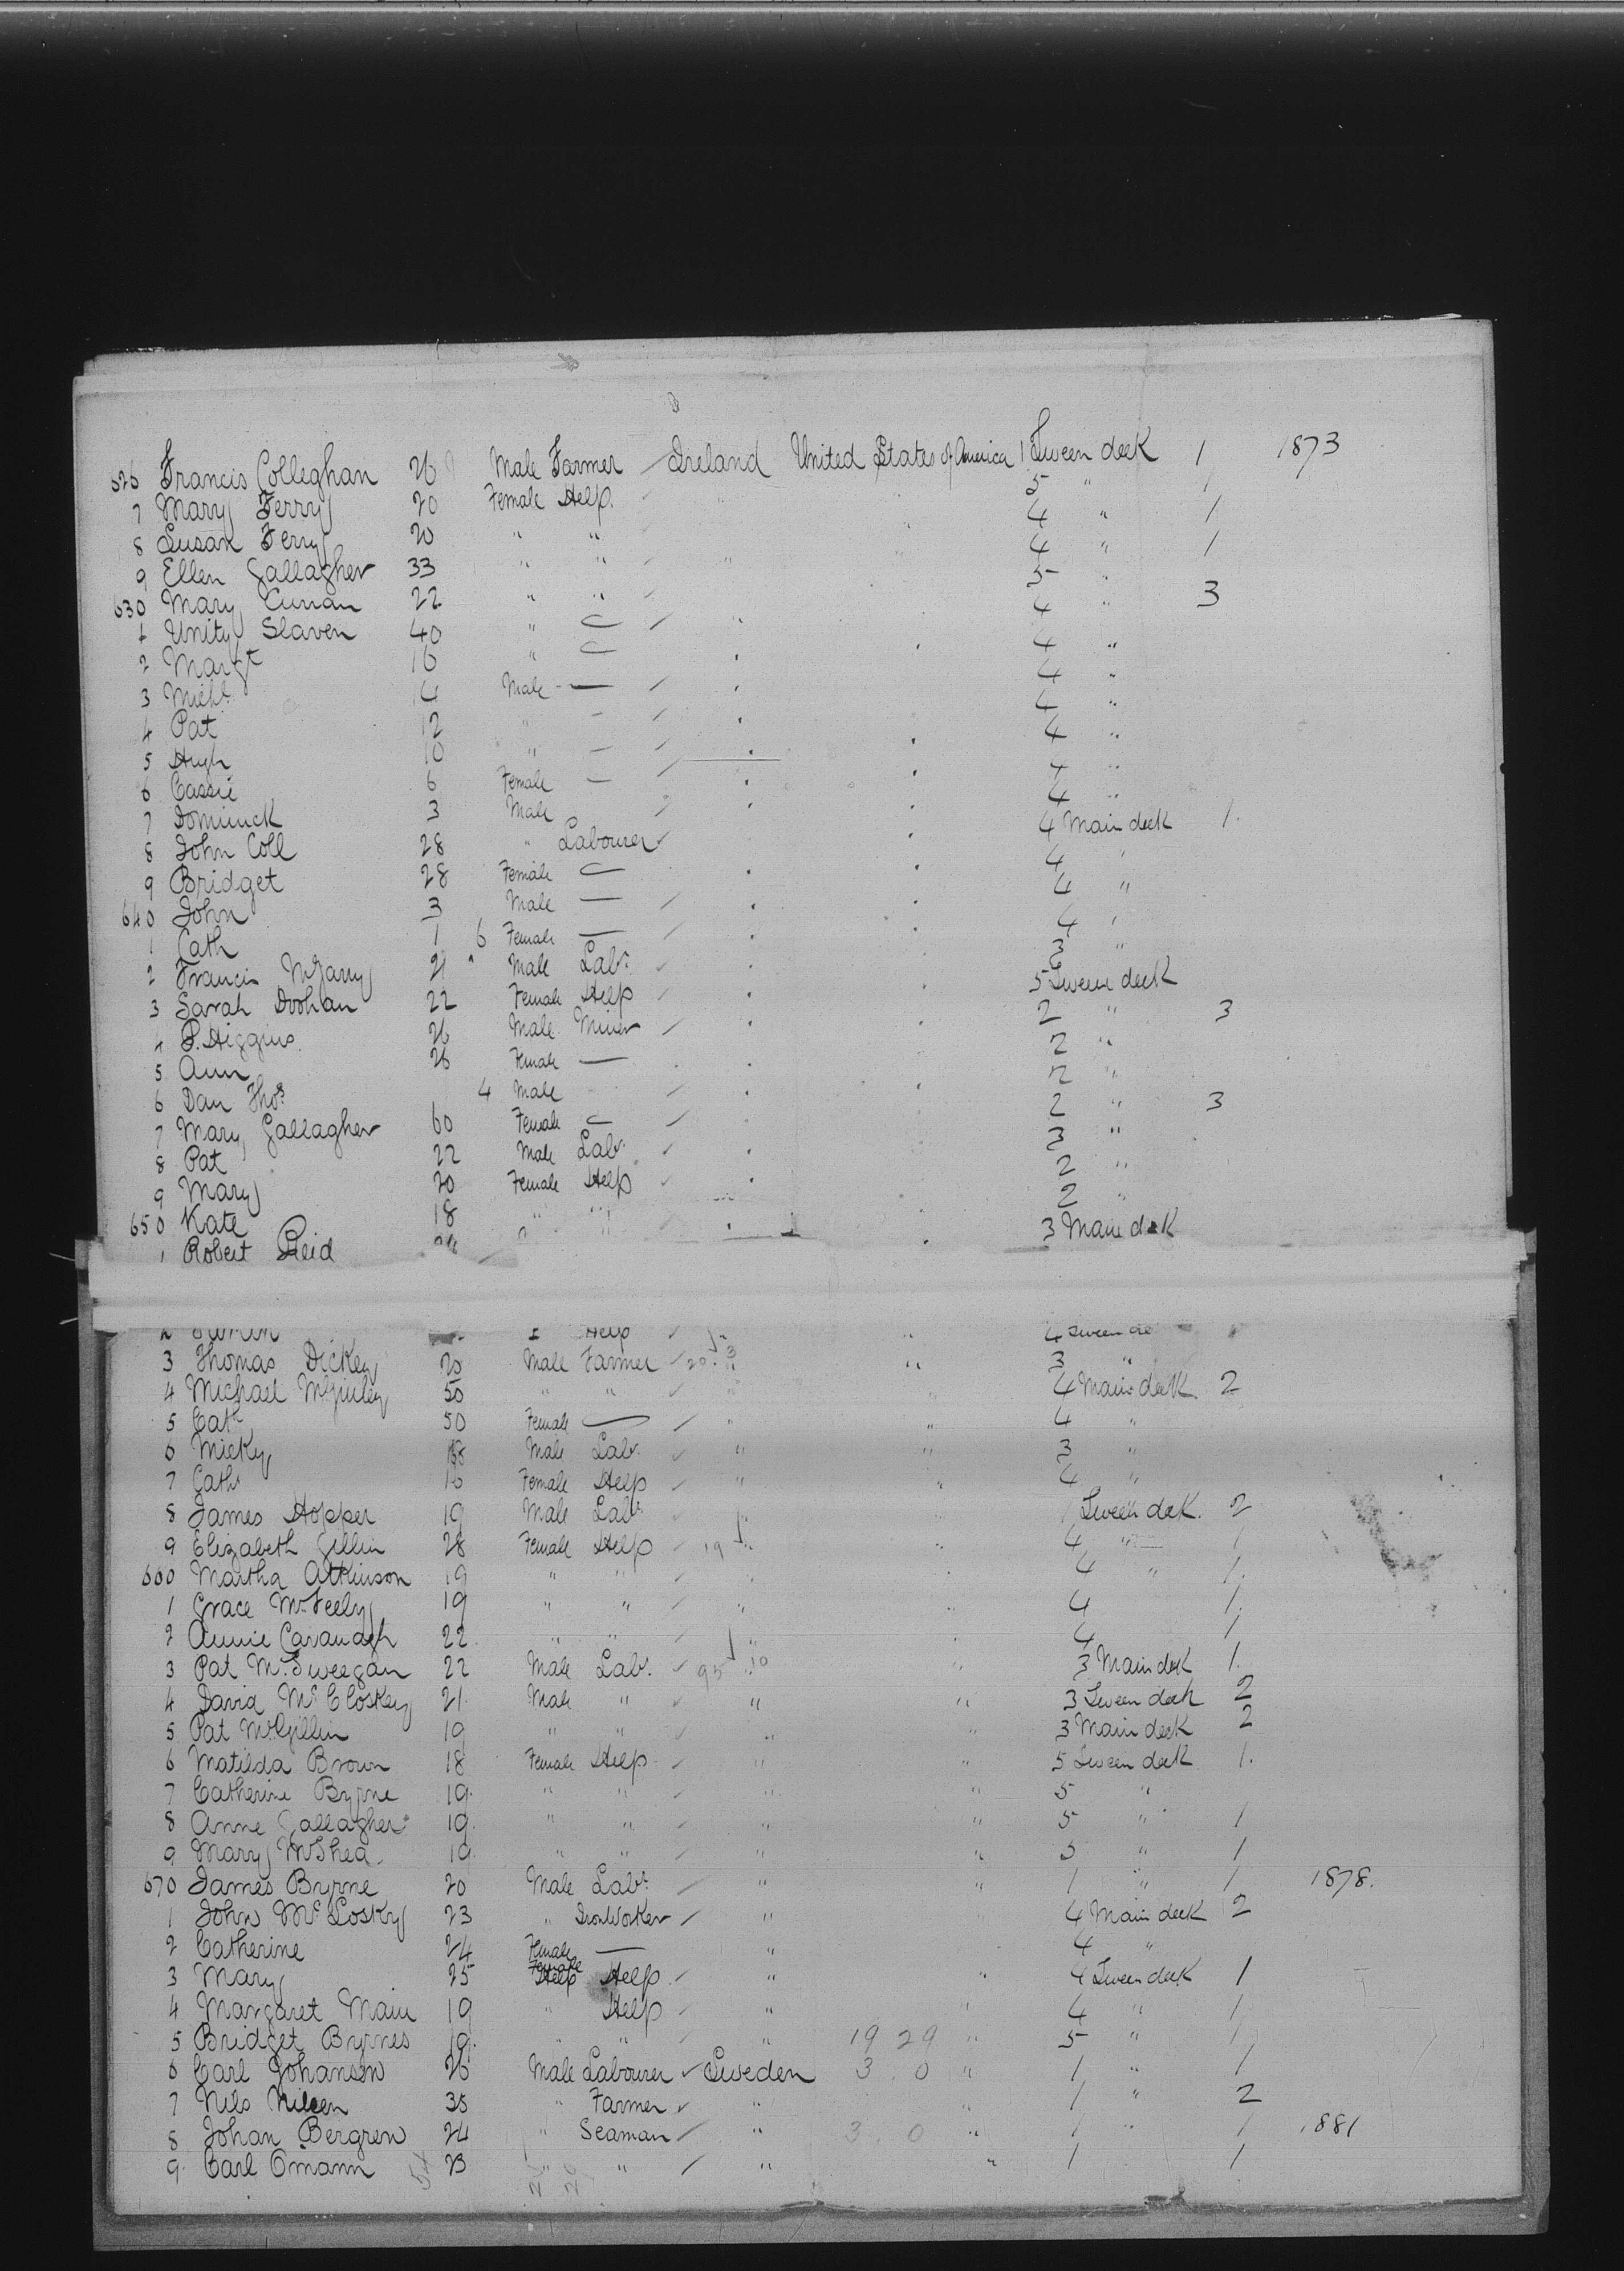 626 Francis Colleghan 26 Male Farmer Ireland United States of America 1 Tween deck 1 1873
7 Mary Ferry 20 Female Help. " " 5 "
8 Susan Ferry 20 " " " 4 " 1
9 Ellen Gallagher 33 " " " " 4 " 1
630 Mary Curran 22 " " 5 "
1 Unity Slaven 40 " — " 4 " 3
2 Margt 16 " — " " 4 "
3 Michl 14 Male — " 4 "
4 Pat 12 " — " 4 "
5 Hugh 10 " — " " 4 "
6 Cassie 6 Female — " " 4 "
7 Dominick 3 Male " " 4 "
8 John Coll 28 " Labourer " 4 Main deck 1.
9 Bridget 28 Female — " " 4 "
640 John 3 Male — " 4 "
1 Cath 1 6 Female — " " 4 "
2 Francis McGarry 21 " Male Labr. " 3 "
3 Sarah Doohan 22 Female Help " " 5 Tween deck
4 P. Higgins 26 Male Miner " 2 " 3
5 Ann 26 Female — " 2 "
6 Dan Thos. 4 Male " " 2 "
7 Mary Gallagher 60 Female — 2 " 3
8 Pat 22 Male Labr. " 3 "
9 Mary 20 Female Help " 2 "
650 Kate 18 " " 2 "
1 Robert Reid " " 3 Main deck
2 Help " 4 Tween de
3 Thomas Dickey 20 Male Farmer 20. 3 " " 3 "
4 Michael McGinley 50 " " " " 4 Main deck. 2
5 Cath 50 Female — " " 4 "
6 Micky 18 Male Labr. " " 3 "
7 Cath 16 Female Help " " 4 "
8 James Hopper 19 Male Labr. " " 1 Tween deck. 2
9 Elizabeth Gillin 28 Female Help 19 " " 4 " 1
660 Martha Atkinson 19 " " " 4 " 1.
1 Grace McFeely 19 " " " " 4 1.
2 Annie Cavanagh 22. " " " " 4 1
3 Pat McSweegan 22 Male Lab. 95 10 " " 3 Main deck 1.
4 David McCloskey 21. Male " " " 3 Tween deck 2
5 Pat McGillin 19 " " " " 3 Main deck 2
6 Matilda Brown 18 Female Help " " 5 Tween deck 1.
7 Catherine Byrne 19. " " " " 5 "
8 Anne Gallagher 19. " " " " 5 " 1
9 Mary McShea. 19. " " " " 5 " 1
670 James Byrne 20 Male Labr. " " 1 " 1 1878.
1 John McLosky 23 " Iron Worker " 4 Main deck 2
2 Catherine 24 Female — " 4 "
3 Mary 25 Female Help Help " " 4 Tween deck 1
4 Margaret Main 19 " Help " " 4 " 1
5 Bridget Byrnes 19. " " " 19 29 " 5 " 1
6 Carl Johansen 26 Male Labourer Sweden 3 0 " 1 " 1
7 Nils Nilsen 35 " Farmer " " 1 " 2
8 Johan Bergren 24 " Seaman " 3 0 " 1 " 1 1881
9. Carl Omann 23 " " " " 1 1